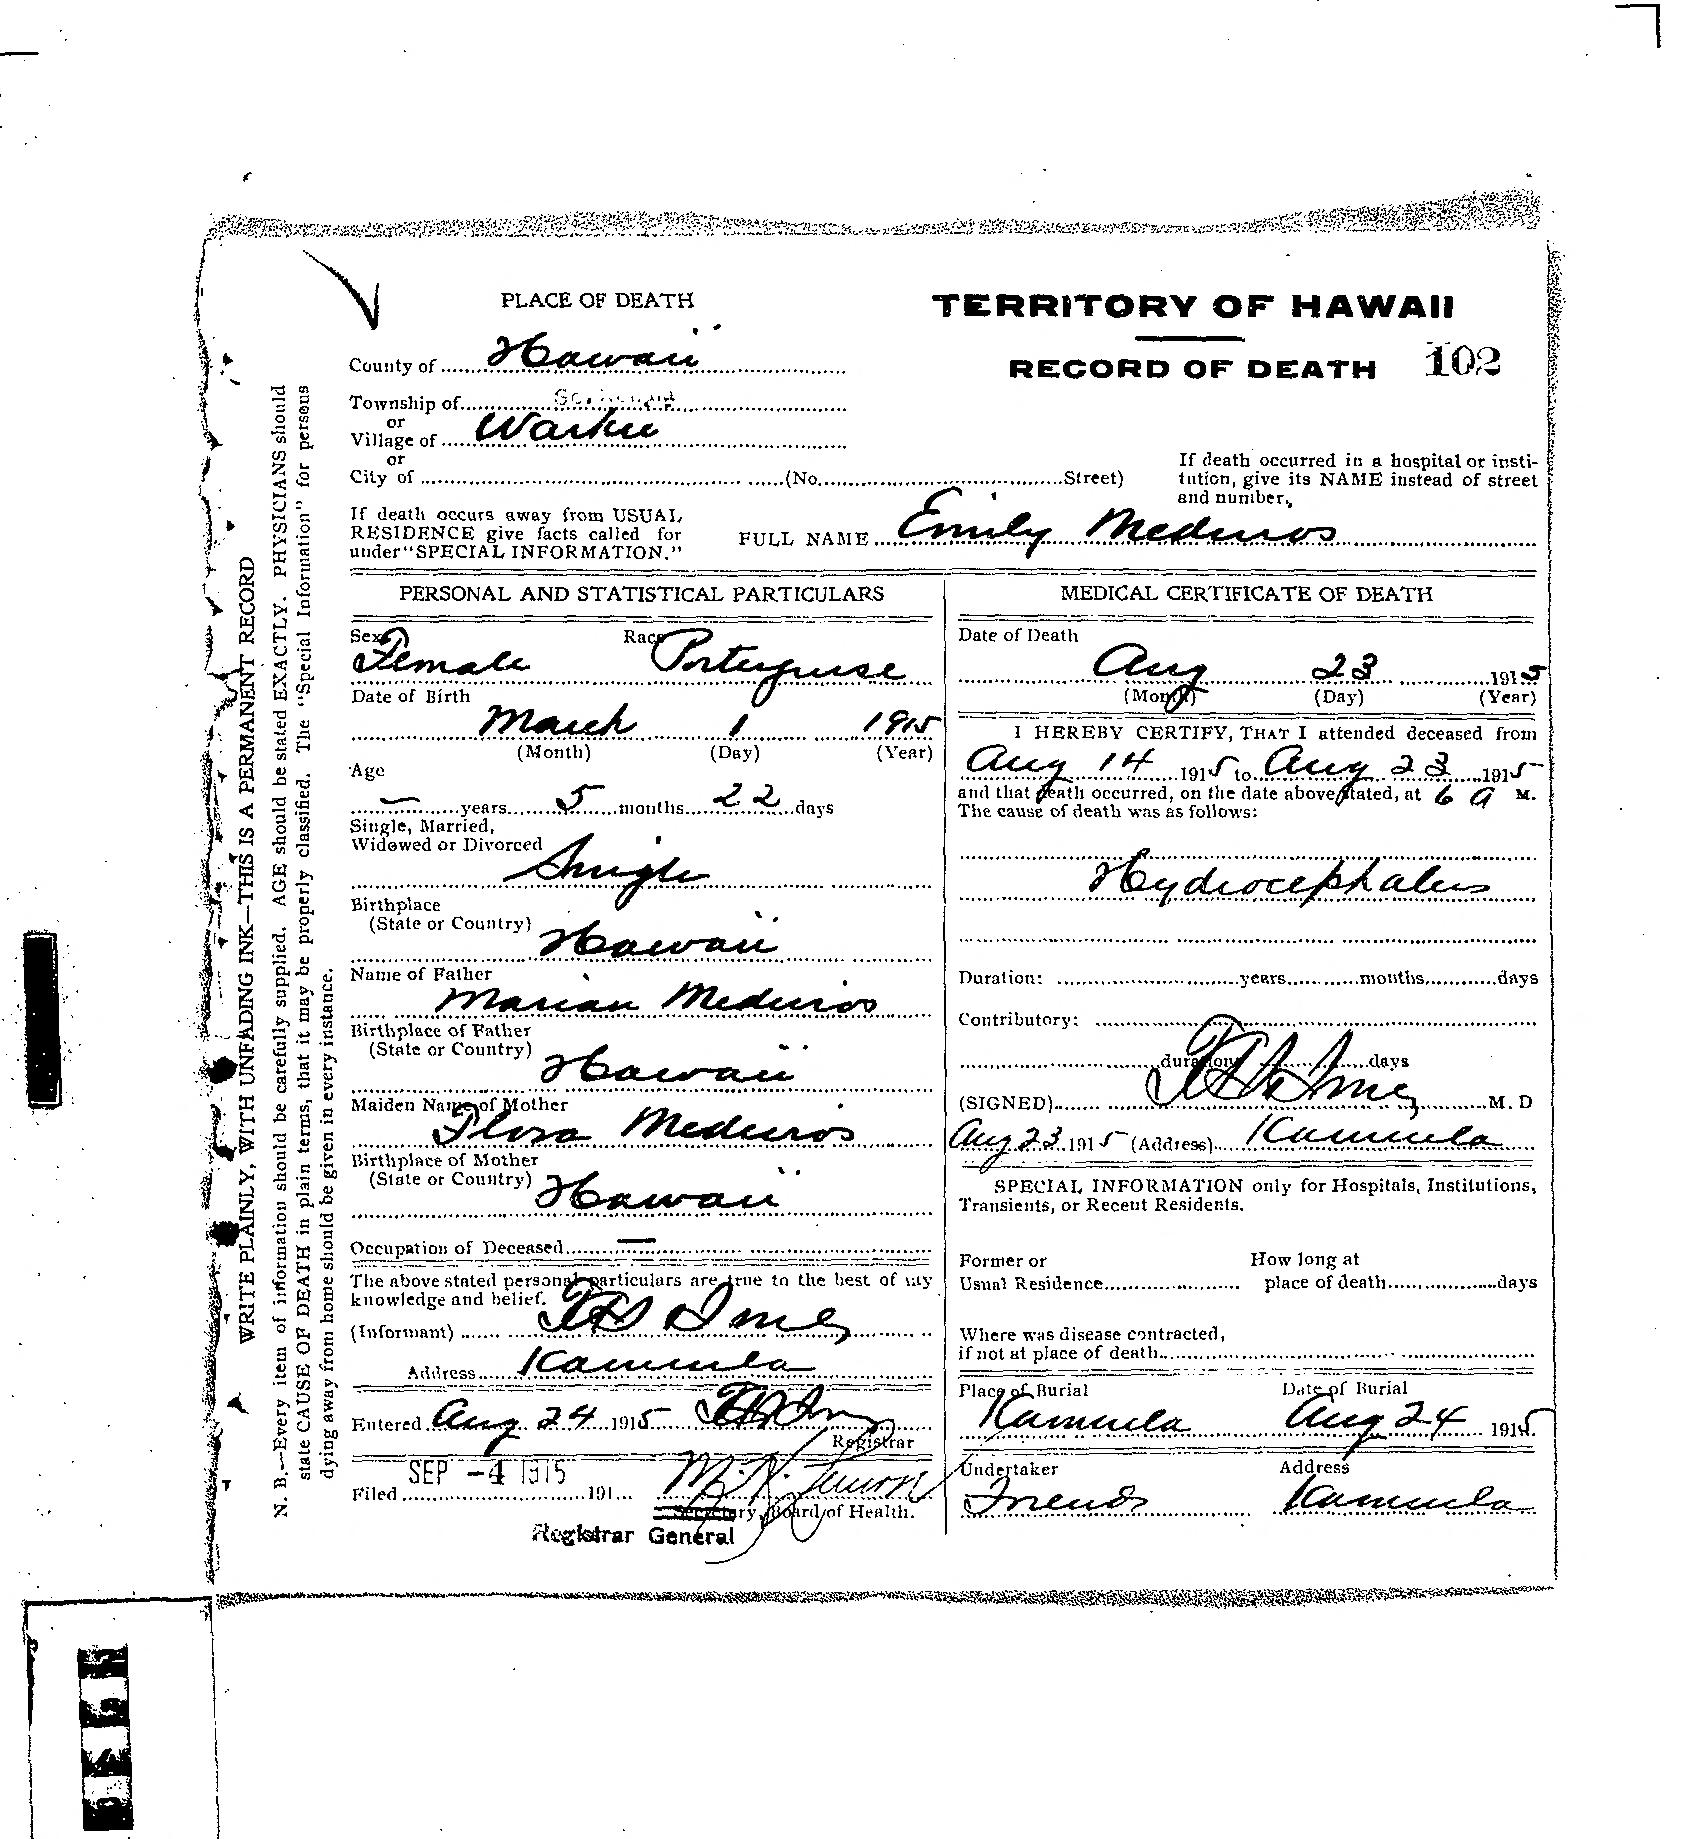 PLACE OF DEATH
TERRITORY OF HAWAII
RECORD OF DEATH 102
County of Hawaii
Township of
or
Village of
or
City of (No. Street)
If death occurred in a hospital or insti-
tution, give its NAME instead of street
and number.
If death occurs away from USUAL
RESIDENCE give facts called for
under "SPECIAL INFORMATION."
FULL NAME Emily Medeiros
PERSONAL AND STATISTICAL PARTICULARS
Sex Female Race Portuguese
Date of Birth
March 1 1915
(Month) (Day) (Year)
Age
— years 5 months 22 days
Single, Married,
Widowed or Divorced
Single
Birthplace
(State or Country)
Hawaii
Name of Father
Marian Medeiros
Birthplace of Father
(State or Country)
Hawaii
Maiden Name of Mother
Flora Medeiros
Birthplace of Mother
(State or Country)
Hawaii
Occupation of Deceased —
The above stated personal particulars are true to the best of my
knowledge and belief.
(Informant)
Address Kamuela
Entered Aug 24 1915
Registrar
SEP -4 1915
Filed 191
Secretary, Board of Health.
Registrar General
MEDICAL CERTIFICATE OF DEATH
Date of Death
Aug 23 1915
(Month) (Day) (Year)
I HEREBY CERTIFY, THAT I attended deceased from
Aug 14 1915 to Aug 23 1915
and that death occurred, on the date above stated, at 6 a M.
The cause of death was as follows:
Hydrocephalus
Duration: years months days
Contributory:
duration days
(SIGNED) M. D
Aug 23 1915 (Address) Kamuela
SPECIAL INFORMATION only for Hospitals, Institutions,
Transients, or Recent Residents.
Former or How long at
Usual Residence place of death days
Where was disease contracted,
if not at place of death
Place of Burial Date of Burial
Kamuela Aug 24 1915.
Undertaker Address
Friends Kamuela
WRITE PLAINLY, WITH UNFADING INK—THIS IS A PERMANENT RECORD
N. B.—Every item of information should be carefully supplied. AGE should be stated EXACTLY. PHYSICIANS should
state CAUSE OF DEATH in plain terms, that it may be properly classified. The "Special Information" for persons
dying away from home should be given in every instance.